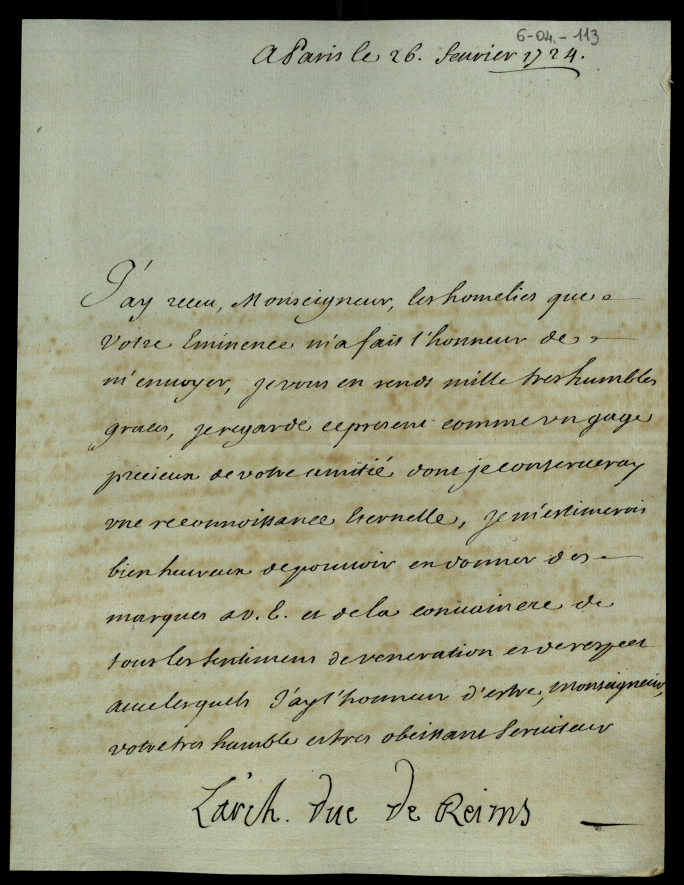 6-04.-113
A Paris le 26. feurier 1724.
J'ay receu, Monseigneur, les homelies que
Votre Eminence m'a fait l'honneur de
m'enuoyer, je vous en rends mille tres humbles
graces, je regarde ce present comme vn gage
precieux de votre amitié dont je conserueray
vne reconnoissance Eternelle, je m'estimerois
bien heureux de pouuoir en donner des
marques a V. E. et de la conuaincre de
tous les sentimens de veneration et de respect
auec lesquels J'ay l'honneur d'estre, Monseigneur,
votre tres humble et tres obeissant Seruiteur
L'arch. duc de Reims